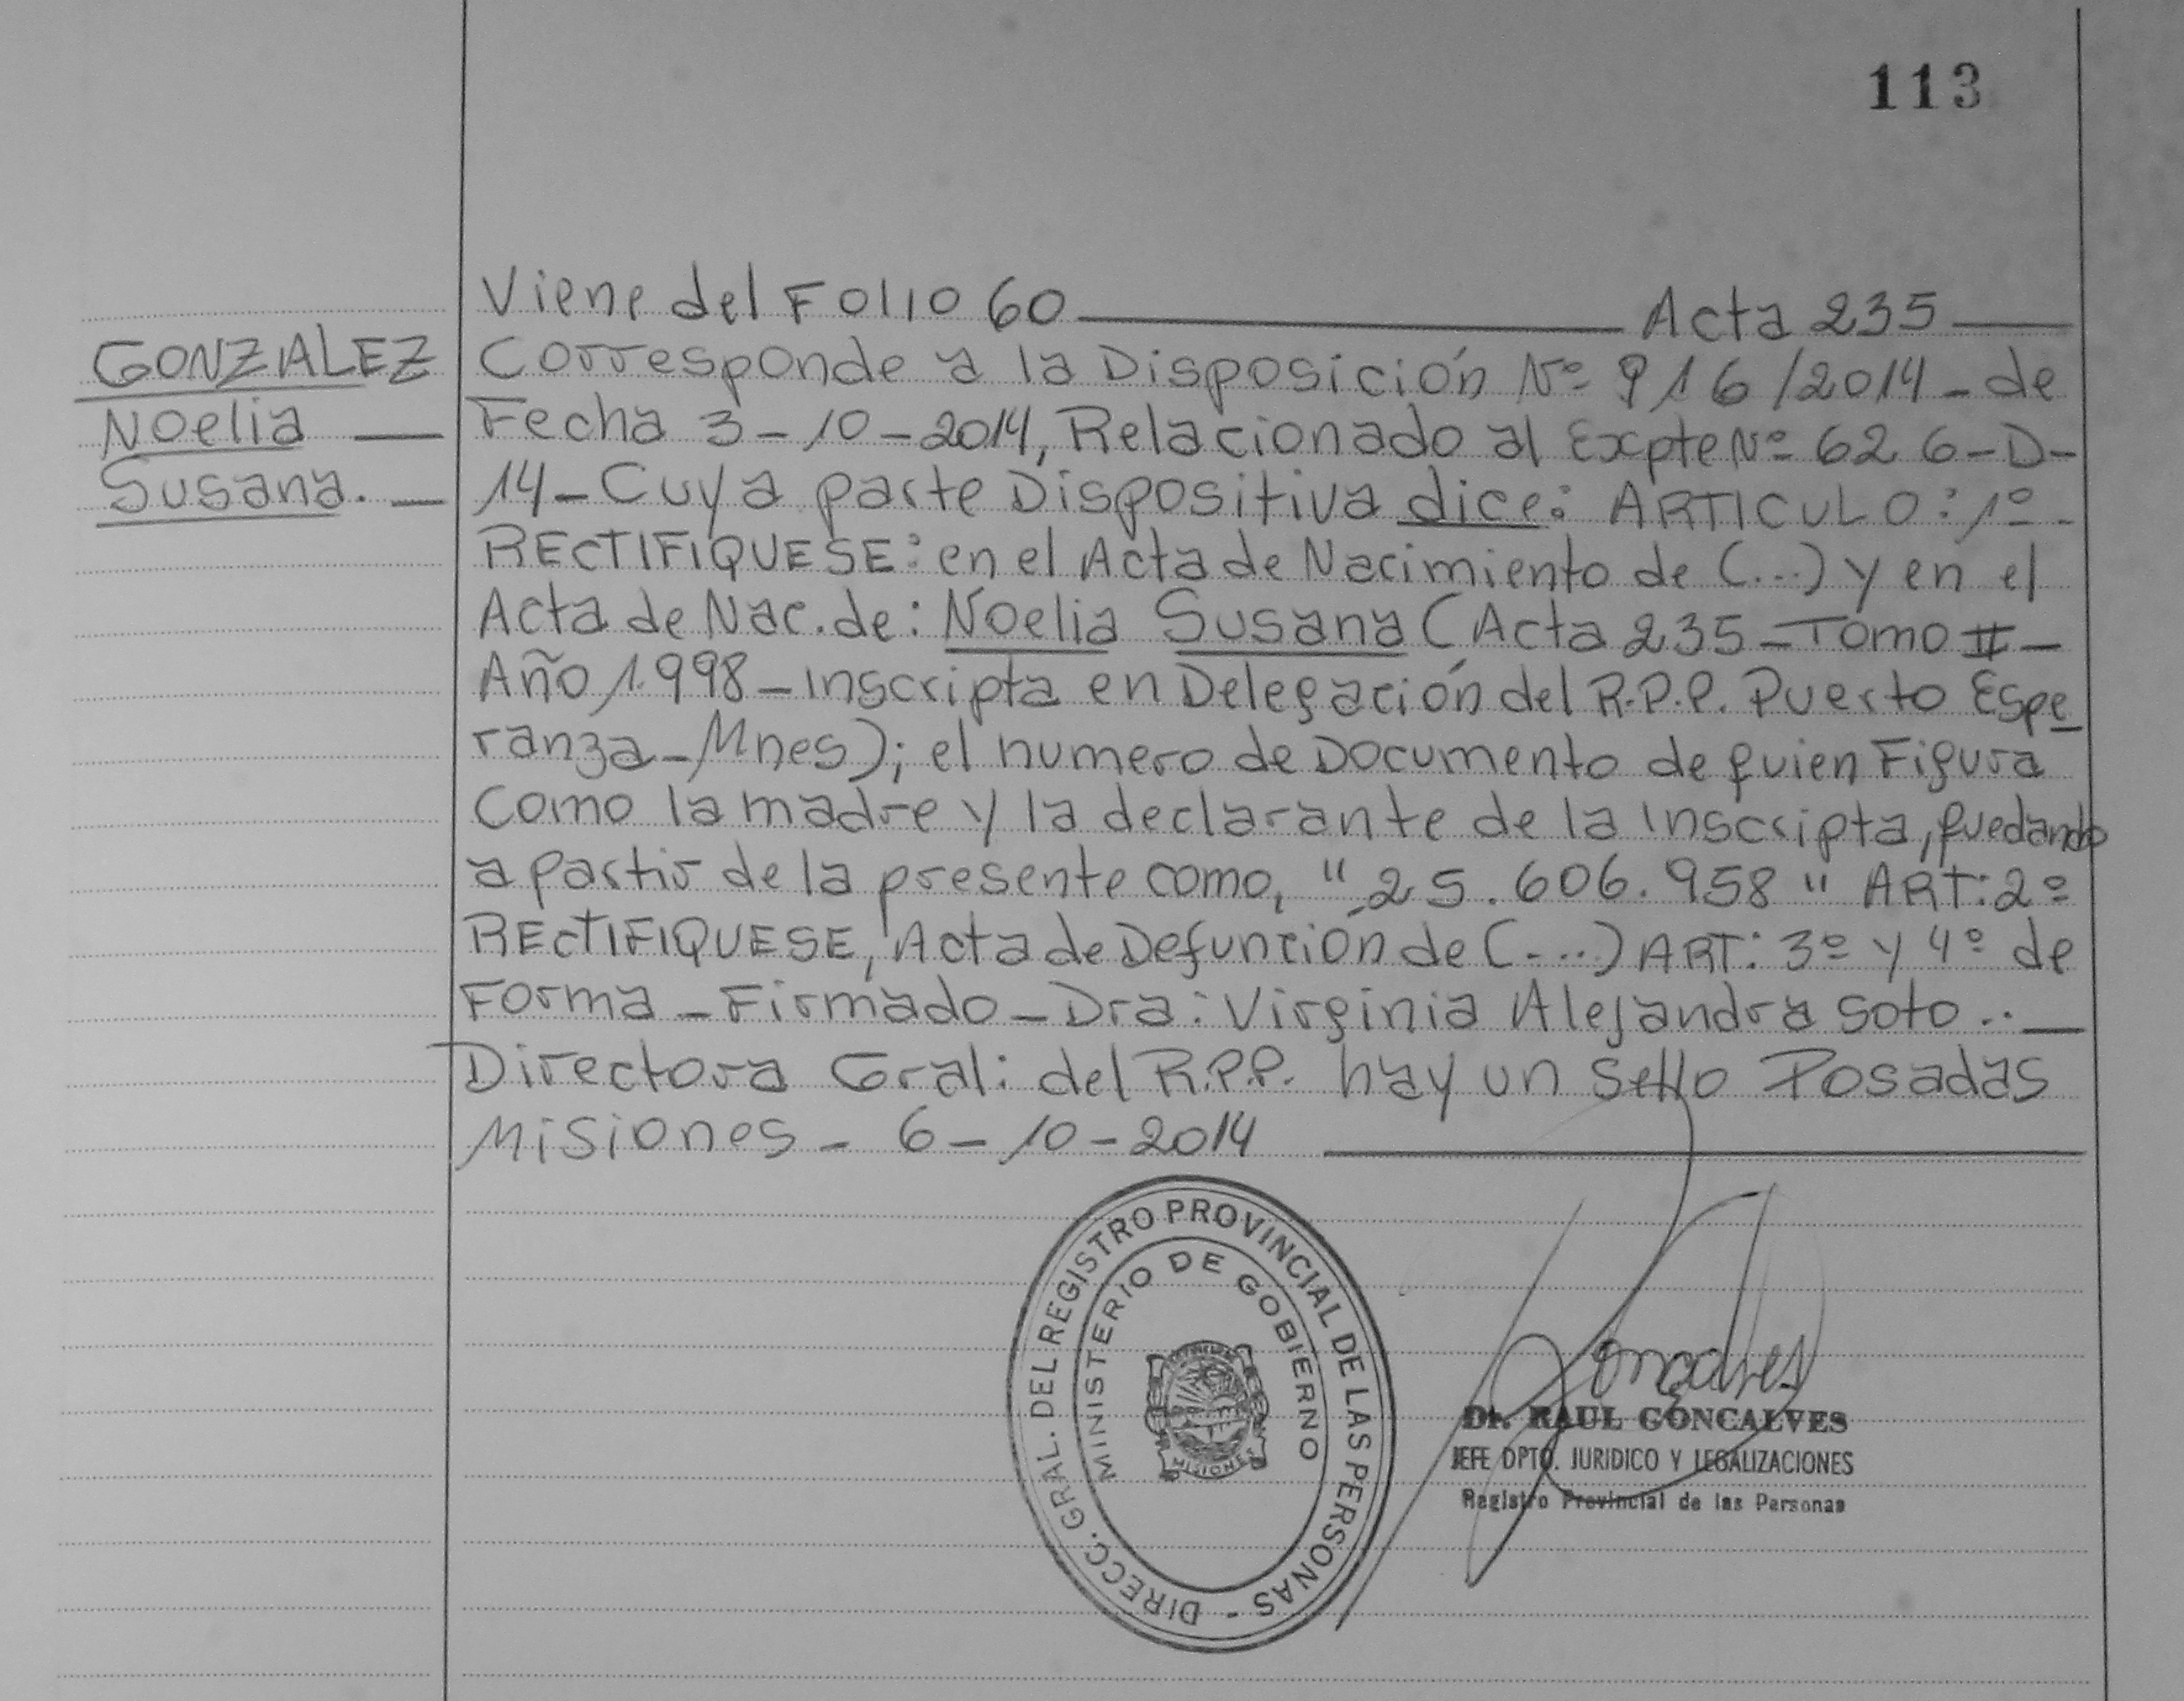 113
Viene del Folio 60 — Acta 235 —
GONZALEZ
Noelia —
Susana. —
Corresponde a la Disposición Nº 916/2014 - de
Fecha 3-10-2014, Relacionado al Expte Nº 626-D-
14 - Cuya parte Dispositiva dice: ARTICULO: 1º -
RECTIFIQUESE: en el Acta de Nacimiento de (...) y en el
Acta de Nac. de: Noelia Susana (Acta 235 - Tomo II -
Año 1.998 - Inscripta en Delegación del R.P.P. Puerto Espe
ranza - Mnes); el numero de Documento de quien Figura
Como la madre y la declarante de la Inscripta, quedando
a partir de la presente como, "25.606.958" ART: 2º
RECTIFIQUESE, Acta de Defunción de (...) ART: 3º y 4º de
Forma - Firmado - Dra: Virginia Alejandra Soto .. —
Directora Gral: del R.P.P. hay un Sello Posadas
Misiones - 6-10-2014 —
DIRECC. GRAL. DEL REGISTRO PROVINCIAL DE LAS PERSONAS -
MINISTERIO DE GOBIERNO
MISIONES
Gonçalves
Dr. RAUL GONCALVES
JEFE DPTO. JURIDICO Y LEGALIZACIONES
Registro Provincial de las Personas